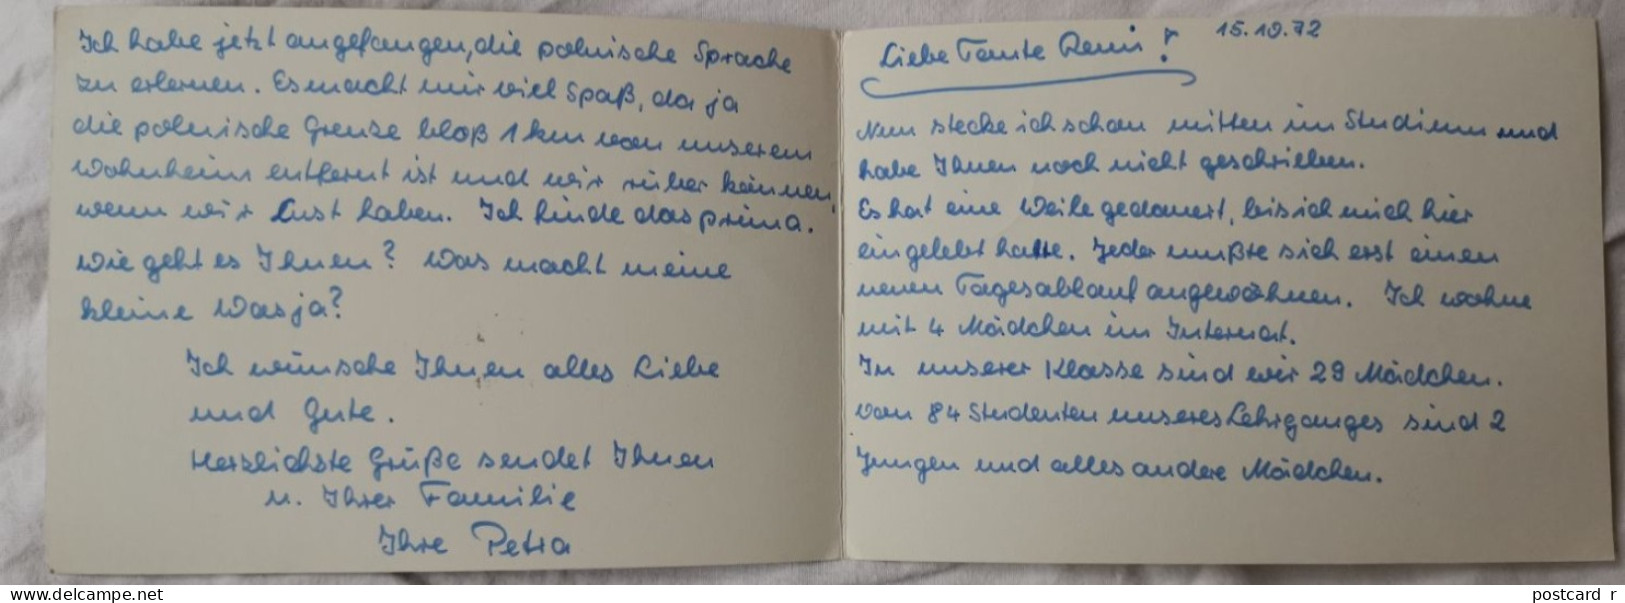 15.10.72
Liebe Tante Reni!
Nun stecke ich schon mitten im Studium und
habe Ihnen noch nicht geschrieben.
Es hat eine Weile gedauert, bis ich mich hier
eingelebt hatte. Jeder mußte sich erst einen
neuen Tagesablauf angewöhnen. Ich wohne
mit 4 Mädchen im Internat.
In unserer Klasse sind wir 29 Mädchen.
Von 84 Studenten unseres Lehrganges sind 2
Jungen und alles andere Mädchen.
Ich habe jetzt angefangen, die polnische Sprache
zu erlernen. Es macht mir viel Spaß, da ja
die polnische Grenze bloß 1 km von unserem
Wohnheim entfernt ist und wir rüber können,
wenn wir Lust haben. Ich finde das prima.
Wie geht es Ihnen? Was macht meine
kleine Wasja?
Ich wünsche Ihnen alles Liebe
und Gute.
Herzlichste Grüße sendet Ihnen
u. Ihrer Familie
Ihre Petra
postcard_r